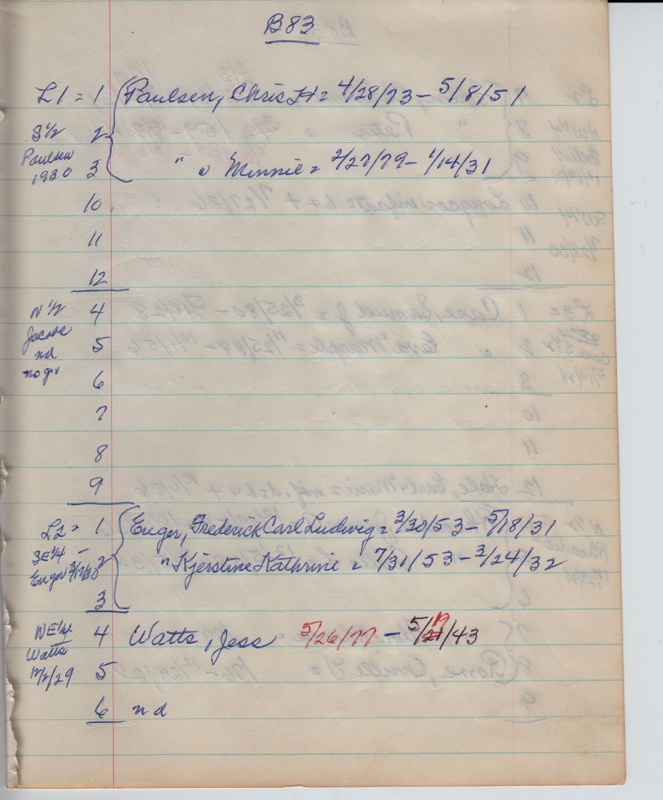 B83
L1 = 1 Paulsen, Chris H = 4/28/73 - 5/8/51
S 1/2 2
Paulsen
1930 3 " " Minnie = 2/27/79 - 1/14/31
10
11
12
N 1/2 4
Jacobs
nd 5
no gr 6
7
8
9
L2 = 1 Enger, Frederick Carl Ludwig = 3/30/53 - 5/18/31
SE 1/4 - 2 " Kjerstine Kathrine = 7/31/53 - 3/24/32
Enger
3
NE 1/4 4 Watts, Jess 5/26/77 - 5/19/43
Watts
12/2/29 5
6 nd